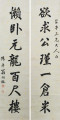 欲求公瑾一倉米
懶卧元龍百尺樓